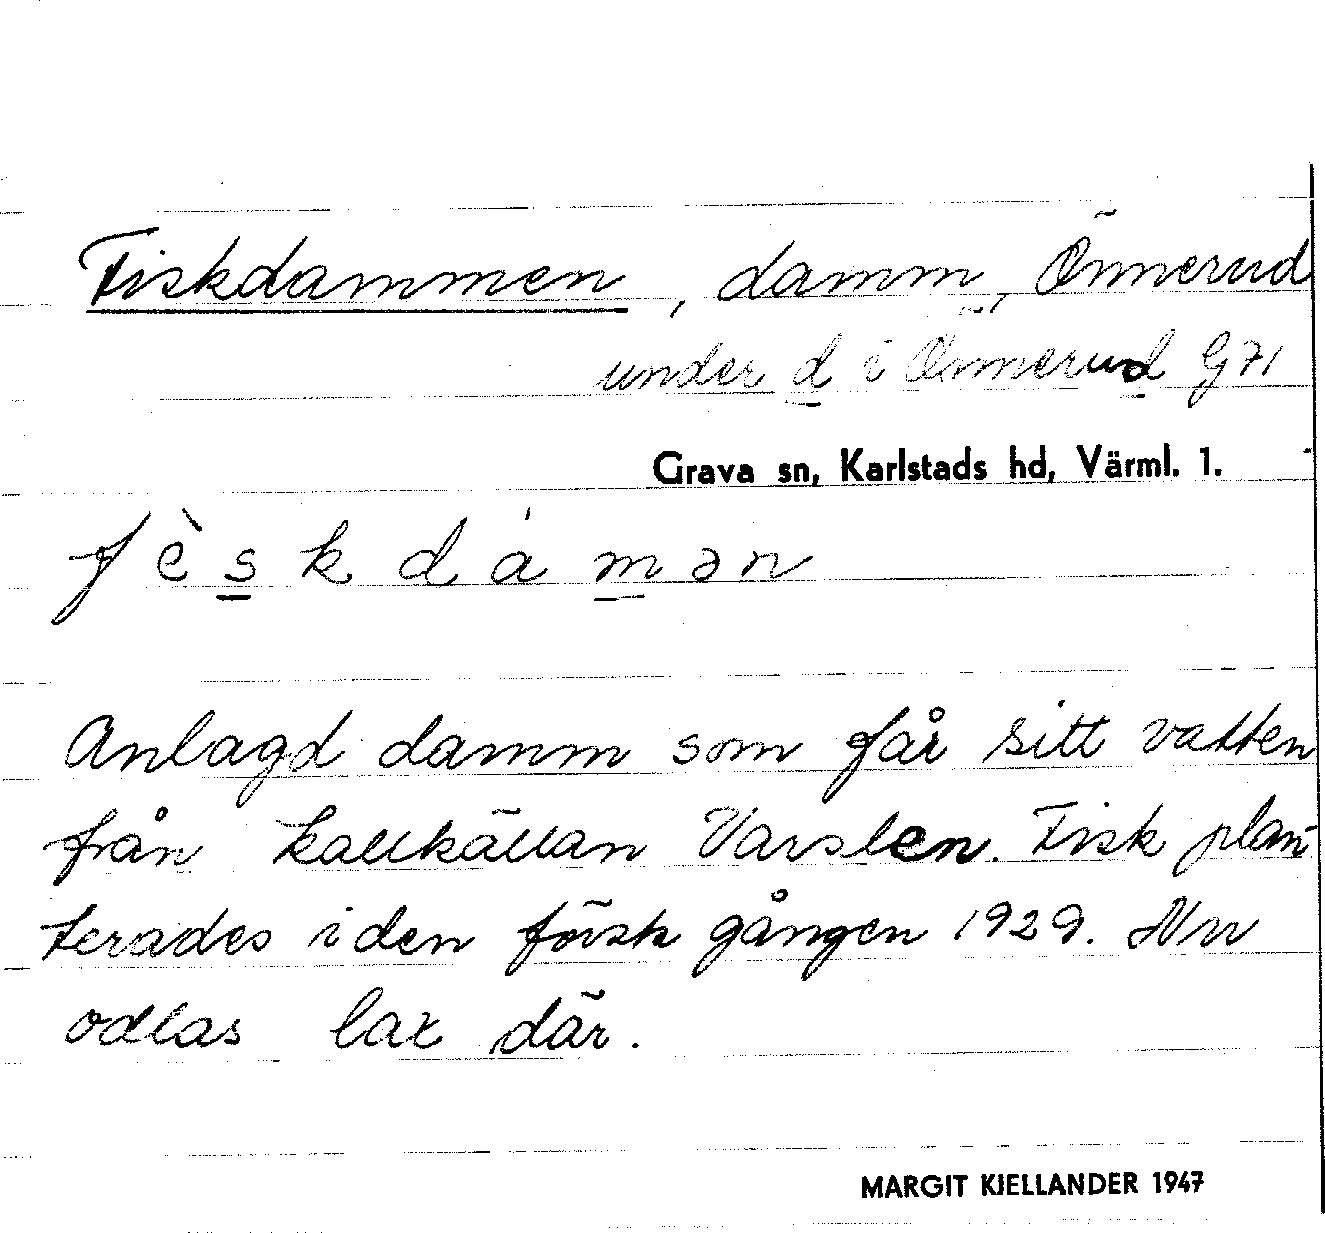 Fiskdammen, damm, Önnerud
under d i Önnerud G 71
Grava sn, Karlstads hd, Värml. 1.
fèskdámən
Anlagd damm som får sitt vatten
från kallkällan Varslen. Fisk plan-
terades i den först gången 1929. Nu
odlas lax där.
MARGIT KJELLANDER 1947